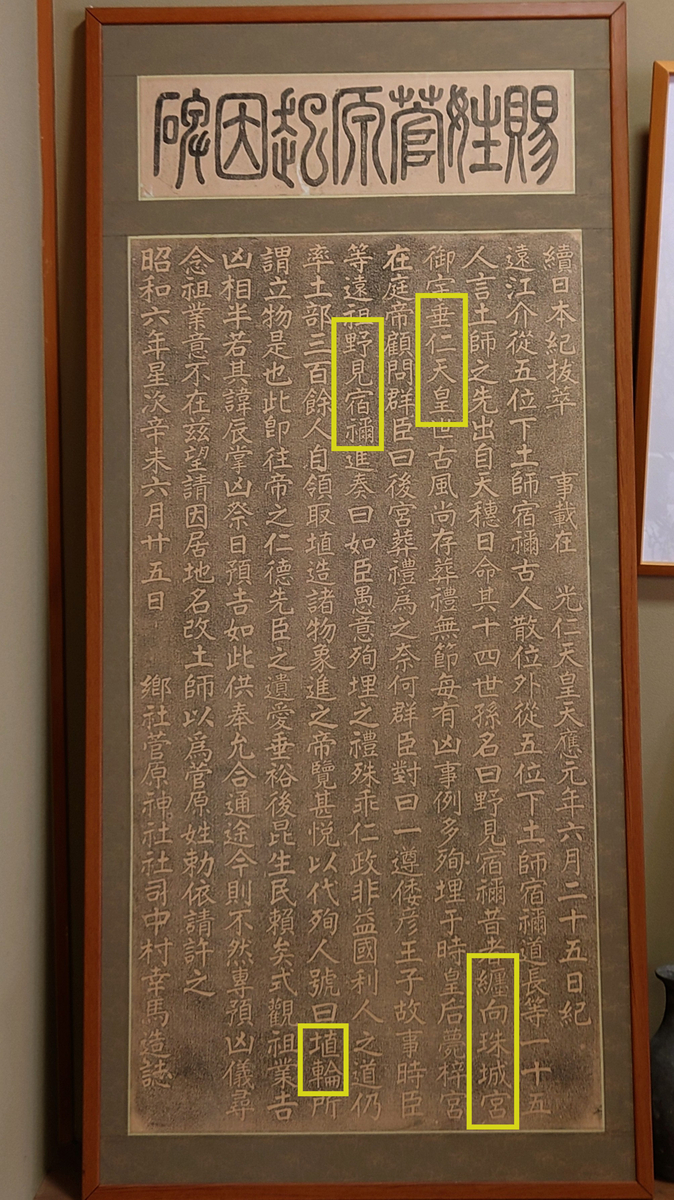 賜姓菅原起因碑
續日本紀拔萃 事載在 光仁天皇天應元年六月二十五日紀
遠江介從五位下土師宿禰古人散位外從五位下土師宿禰道長等一十五
人言土師之先出自天穗日命其十四世孫名曰野見宿禰昔者纏向珠城宮
御宇垂仁天皇世古風尚存葬禮無節每有凶事例多殉埋于時皇后薨梓宮
在庭帝顧問群臣曰後宮葬禮爲之奈何群臣對曰一遵倭彦王子故事時臣
等遠祖野見宿禰進奏曰如臣愚意殉埋之禮殊乖仁政非益國利人之道仍
率土部三百餘人自領取埴造諸物象進之帝覽甚悅以代殉人號曰埴輪所
謂立物是也此卽往帝之仁德先臣之遺愛垂裕後昆生民賴矣式觀祖業吉
凶相半若其諱辰掌凶祭日預吉如此供奉允合通途今則不然專預凶儀尋
念祖業意不在茲望請因居地名改土師以爲菅原姓勅依請許之
昭和六年星次辛未六月廿五日 鄉社菅原神社社司中村幸馬造誌